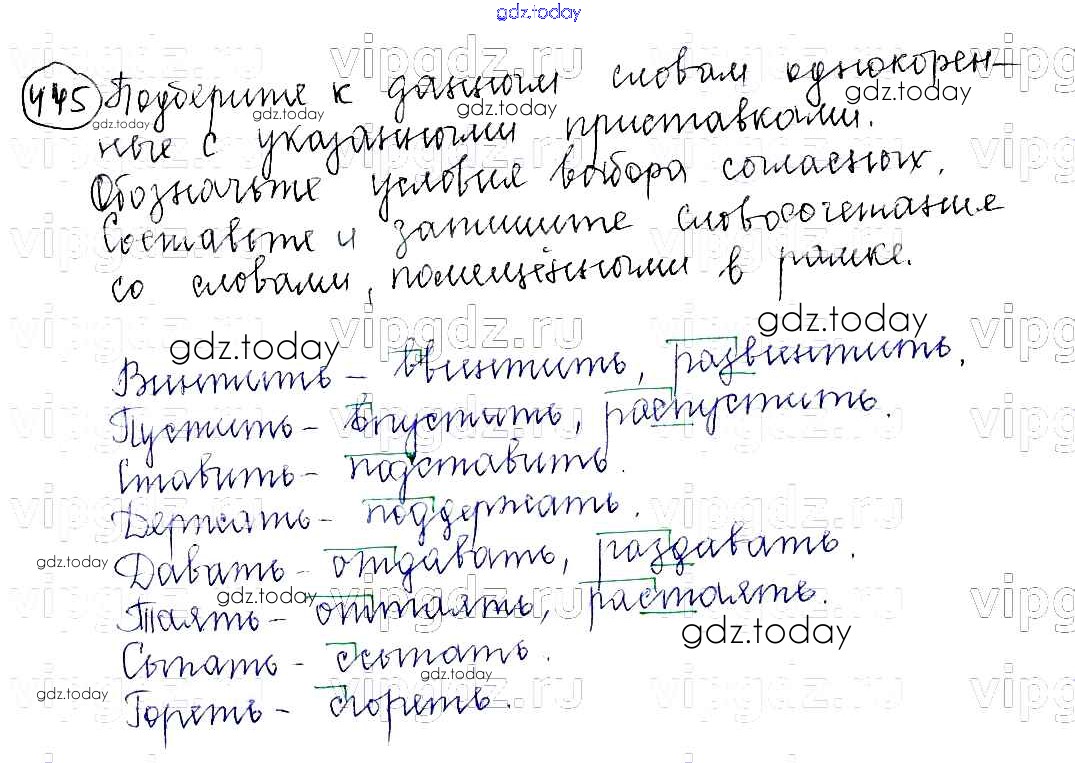 gdz.today
445 Подберите к данным словам однокорен-
ные с указанными приставками.
Обозначьте условия выбора согласных.
Составьте и запишите словосочетание
со словами, помещёнными в рамке.
Винтить - ввинтить, развинтить,
Пустить - впустить, распустить.
Ставить - подставить.
Держать - поддержать.
Давать - отдавать, раздавать.
Таять - оттаять, растаять.
Сыпать - ссыпать.
Гореть - сгореть.